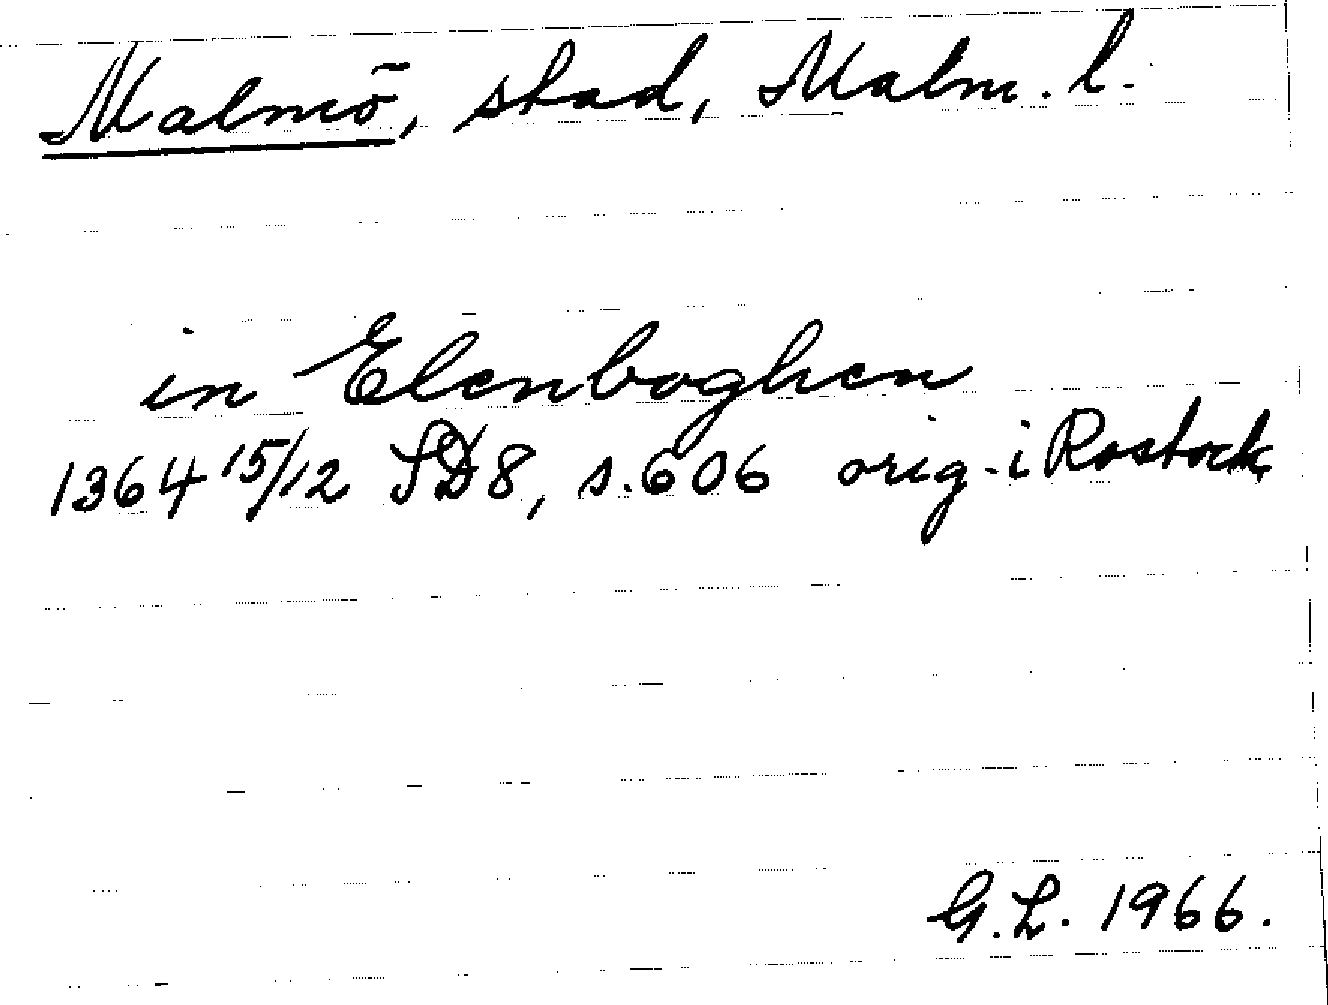 Malmö, stad, Malm. l.
in Elenboghen
1364 15/12 SD8, s.606 orig. i Rostock
G.L. 1966.